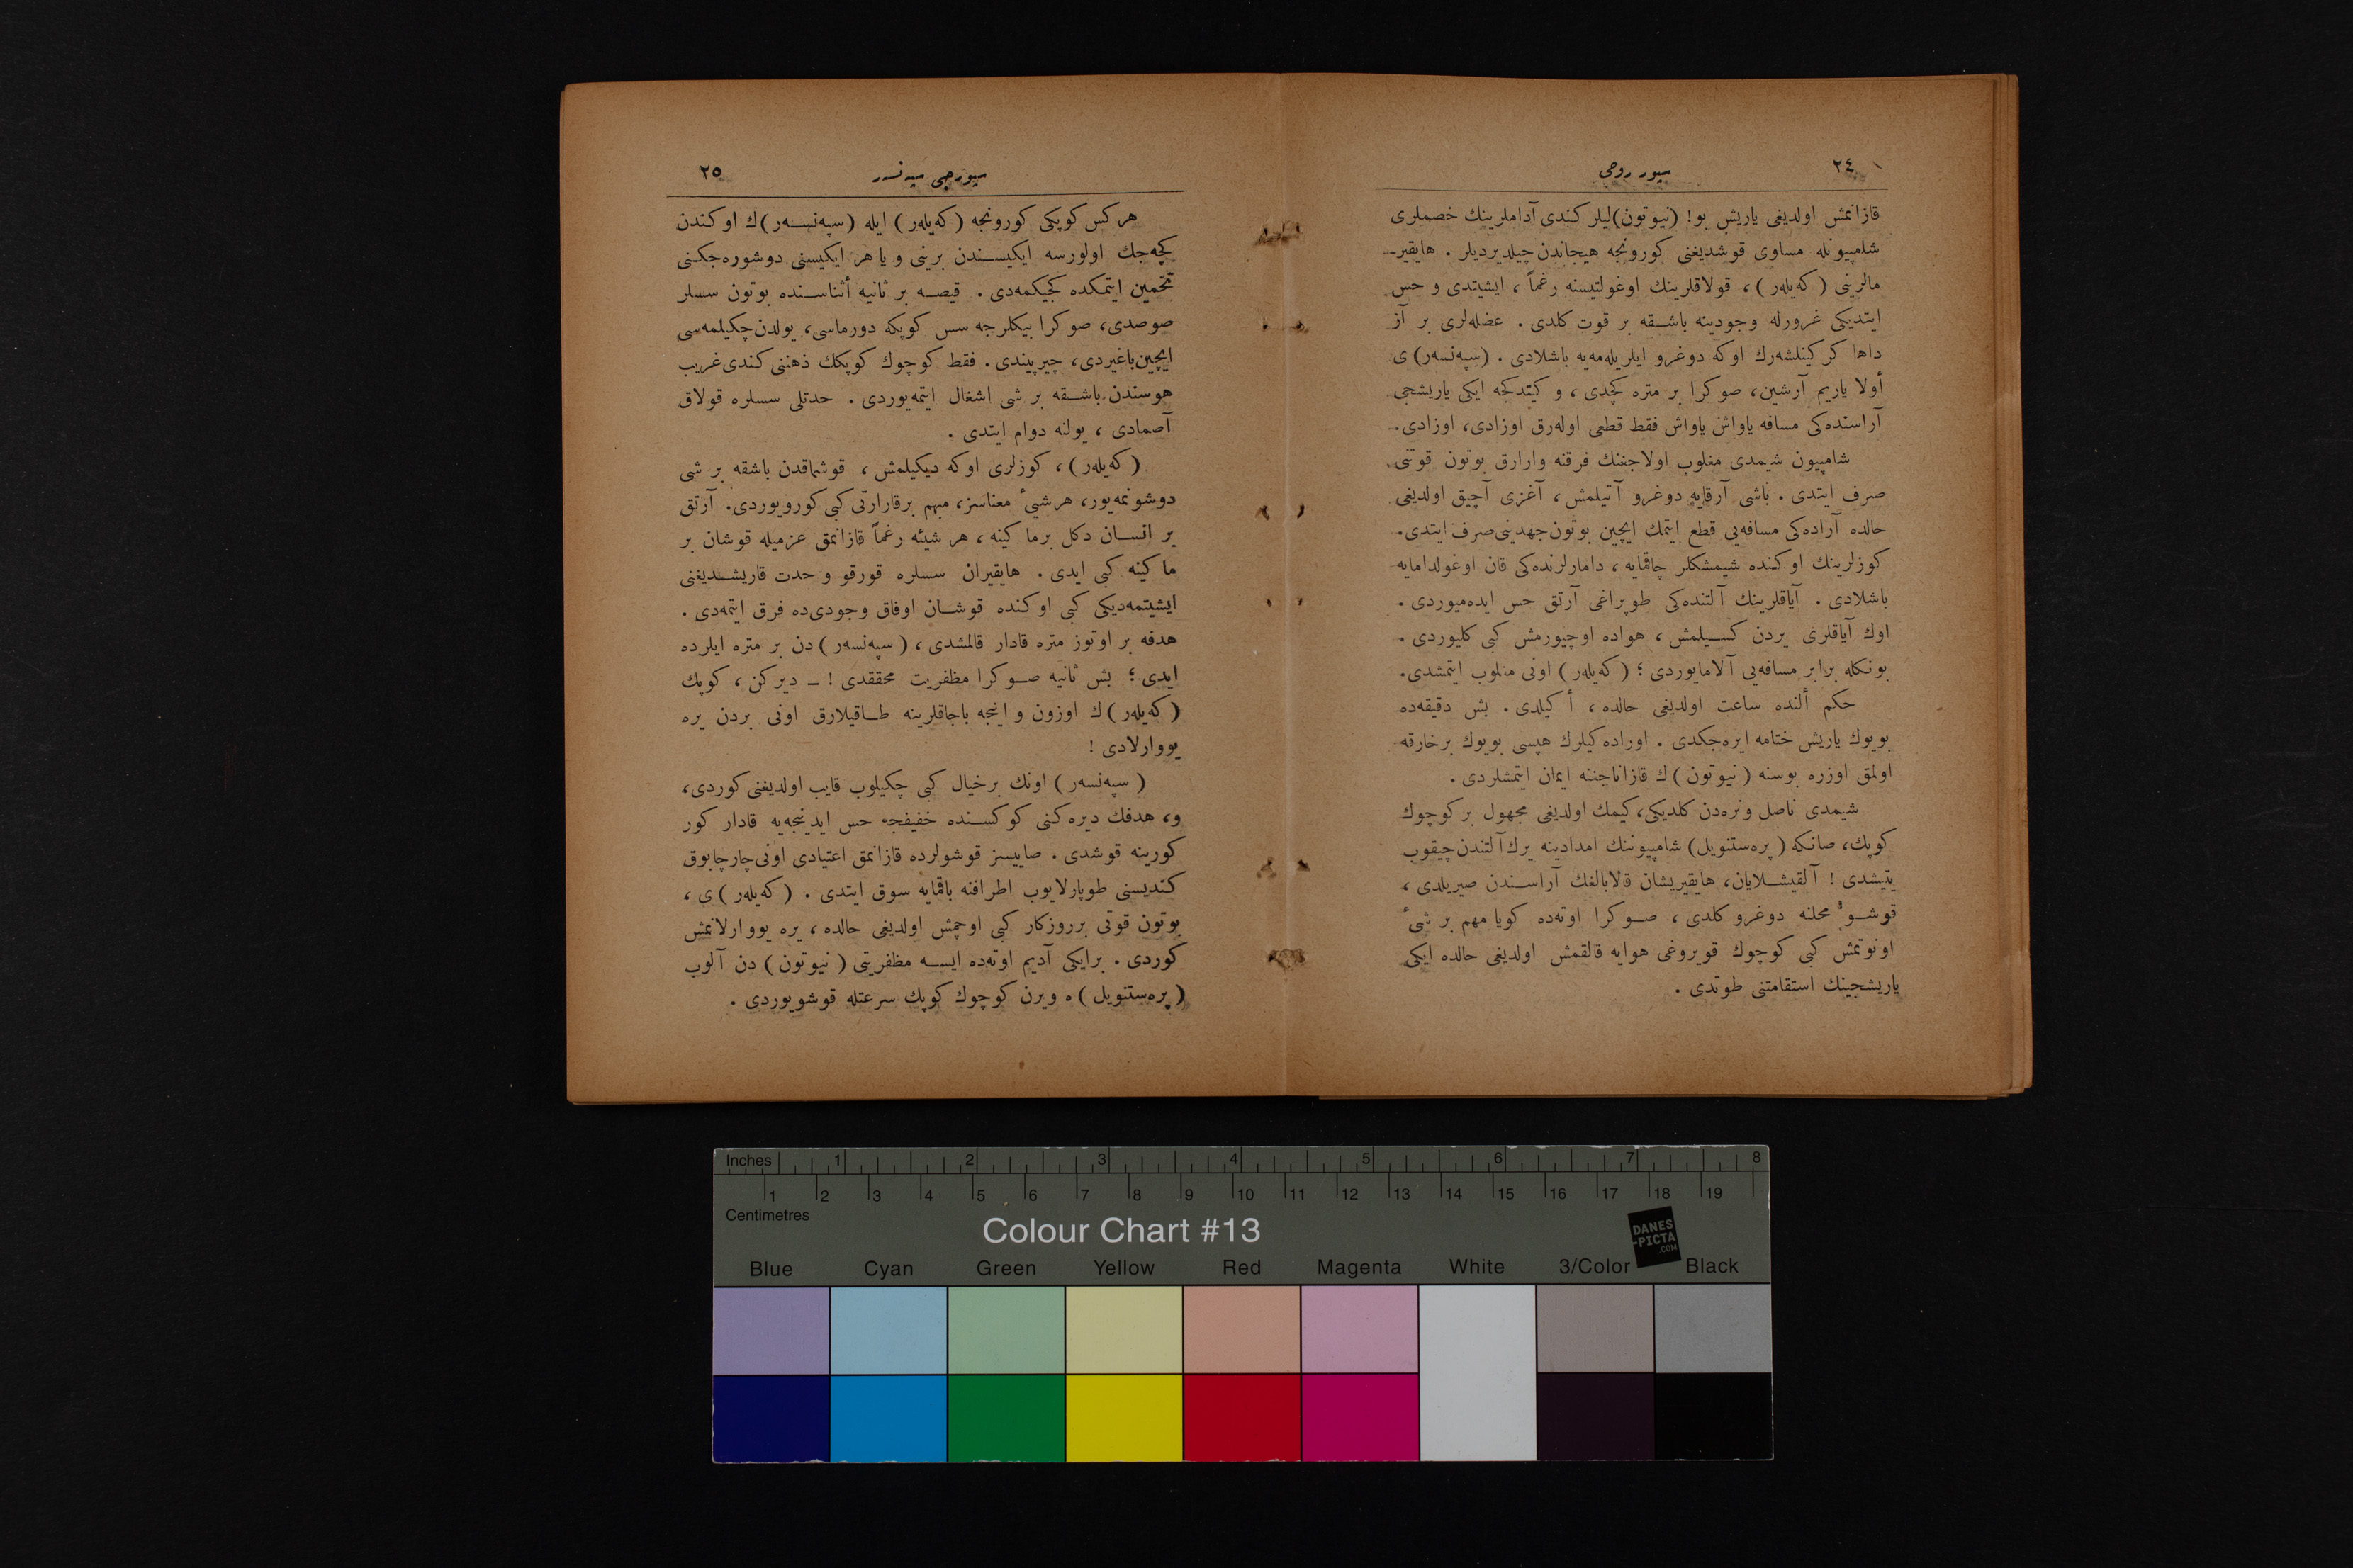 ٢٤
سپور روحی
قازانمش اولدیغی یاریش بو! (نیوتون)لیلر كندی آداملرینك خصملری
شامپیونله مساوی قوشدیغنی كورونجه هیجاندن چیلدیردیلر . هایقیر-
مالرینی (كه‌یله‌ر) ، قولاقلرینك اوغولتیسنه رغماً ، ایشیتدی و حس
ایتدیكی غرورله وجودینه باشـقه بر قوت كلدی . عضله‌لری بر آز
داها كركینلشه‌رك اوكه دوغرو ایلریله‌مه‌یه باشلادی . (سپه‌نسه‌ر)ی
أولا یاریم آرشین، صوكرا بر متره كچدی ، و كیتدكجه ایكی یاریشجی
آراسنده‌كی مسافه یاواش یاواش فقط قطعی اوله‌رق اوزادی، اوزادی.
شامپیون شیمدی مغلوب اولاجغنك فرقنه وارارق بوتون قوتنی
صرف ایتدی . باشی آرقایه دوغرو آتیلمش ، آغزی آچیق اولدیغی
حالده آراده‌كی مسافه‌یی قطع ایتمك ایچین بوتون جهدینی صرف ایتدی.
كوزلرینك اوكنده شیمشكلر چاقمایه ، دامارلرنده‌كی قان اوغولدامایه
باشلادی . آیاقلرینك آلتنده‌كی طوپراغی آرتق حس ایده‌میوردی .
اوك آیاقلری یردن كسـیلمش ، هواده اوچیورمش كبی كلیوردی .
بونكله برابر مسافه‌یی آلامایوردی ؛ (كه‌یله‌ر) اونی مغلوب ایتمشدی.
حكم ألنده ساعت اولدیغی حالده ، أكیلدی . بش دقیقه‌ده
بویوك یاریش ختامه ایره‌جكدی . اوراده‌كیلرك هپسی بویوك برخارقه
اولمق اوزره بوسنه (نیوتون)ك قازاناجننه ایمان ایتمشلردی .
شیمدی ناصل و نره‌دن كلدیكی، كیمك اولدیغی مجهول بر كوچوك
كوپك، صانكه (پره‌ستنویل) شامپیوننك امدادینه یرك آلتندن چیقوب
یتیشدی ! آلقیشـلایان، هایقیریشان قالابالغك آراسـندن صیریلدی ،
قوشـو محلنه دوغرو كلدی ، صـوكرا اوته‌ده كویا مهم بر شیٔ
اونوتمش كبی كوچوك قویروغی هوایه قالقمش اولدیغی حالده ایكی
یاریشجینك استقامتنی طوتدی .
سپورجی سپه‌نسه‌ر
٢٥
هركس كوپكی كورونجه (كه‌یله‌ر) ایله (سپه‌نسـه‌ر)ك اوكندن
كچه‌جك اولورسه ایكیسـندن برینی و یا هر ایكیسنی دوشوره‌جكنی
تخمین ایتمكده كجیكمه‌دی . قیصـه بر ثانیه أثناسـنده بوتون سسلر
صوصدی، صوكرا بیكلرجه سس كوپكه دورماسی، یولدن چكیلمه‌سی
ایچین باغیردی، چیرپیندی . فقط كوچوك كوپكك ذهننی كندی غریب
هوسندن باشـقه بر شی اشغال ایتمه‌یوردی . حدتلی سسلره قولاق
آصمادی ، یولنه دوام ایتدی .
(كه‌یله‌ر) ، كوزلری اوكه دیكیلمش ، قوشماقدن باشقه بر شی
دوشونمه‌یور، هرشیٔ معناسز، مبهم برقارارتی كبی كورویوردی. آرتق
بر انسـان دكل برما كینه ، هر شیئه رغماً قازانمق عزمیله قوشان بر
ماكینه كبی ایدی . هایقیران سسلره قورقو و حدت قاریشـدیغنی
ایشیتمه‌دیكی كبی اوكنده قوشـان اوفاق وجودی‌ده فرق ایتمه‌دی .
هدفه بر اوتوز متره قادار قالمشدی ، (سپه‌نسه‌ر)دن بر متره ایلرده
ایدی ؛ بش ثانیه صـوكرا مظفریت محققدی ! ــ دیركن ، كوپك
(كه‌یله‌ر)ك اوزون و اینجه باجاقلرینه طـاقیلارق اونی بردن یره
یووارلادی !
(سپه‌نسه‌ر) اونك برخیال كبی چكیلوب قایب اولدیغنی كوردی،
و، هدفك دیره‌كنی كوكسـنده خفیفجه حس ایدینجه‌یه قادار كور
كورینه قوشدی . صاییسز قوشولرده قازانمق اعتیادی اونی چارچابوق
كندیسنی طوپارلایوب اطرافنه باقمایه سوق ایتدی . (كه‌یله‌ر)ی ،
بوتون قوتی برروزكار كبی اوچمش اولدیغی حالده ، یره یووارلانمش
كوردی . برایكی آدیم اوته‌ده ایسـه مظفریتی (نیوتون)دن آلوب
(پره‌ستنویل)ه ویرن كوچوك كوپك سرعتله قوشویوردی .
Inches 1 2 3 4 5 6 7 8
1 2 3 4 5 6 7 8 9 10 11 12 13 14 15 16 17 18 19
Centimetres
Colour Chart #13
DANES
-PICTA
.COM
Blue Cyan Green Yellow Red Magenta White 3/Color Black